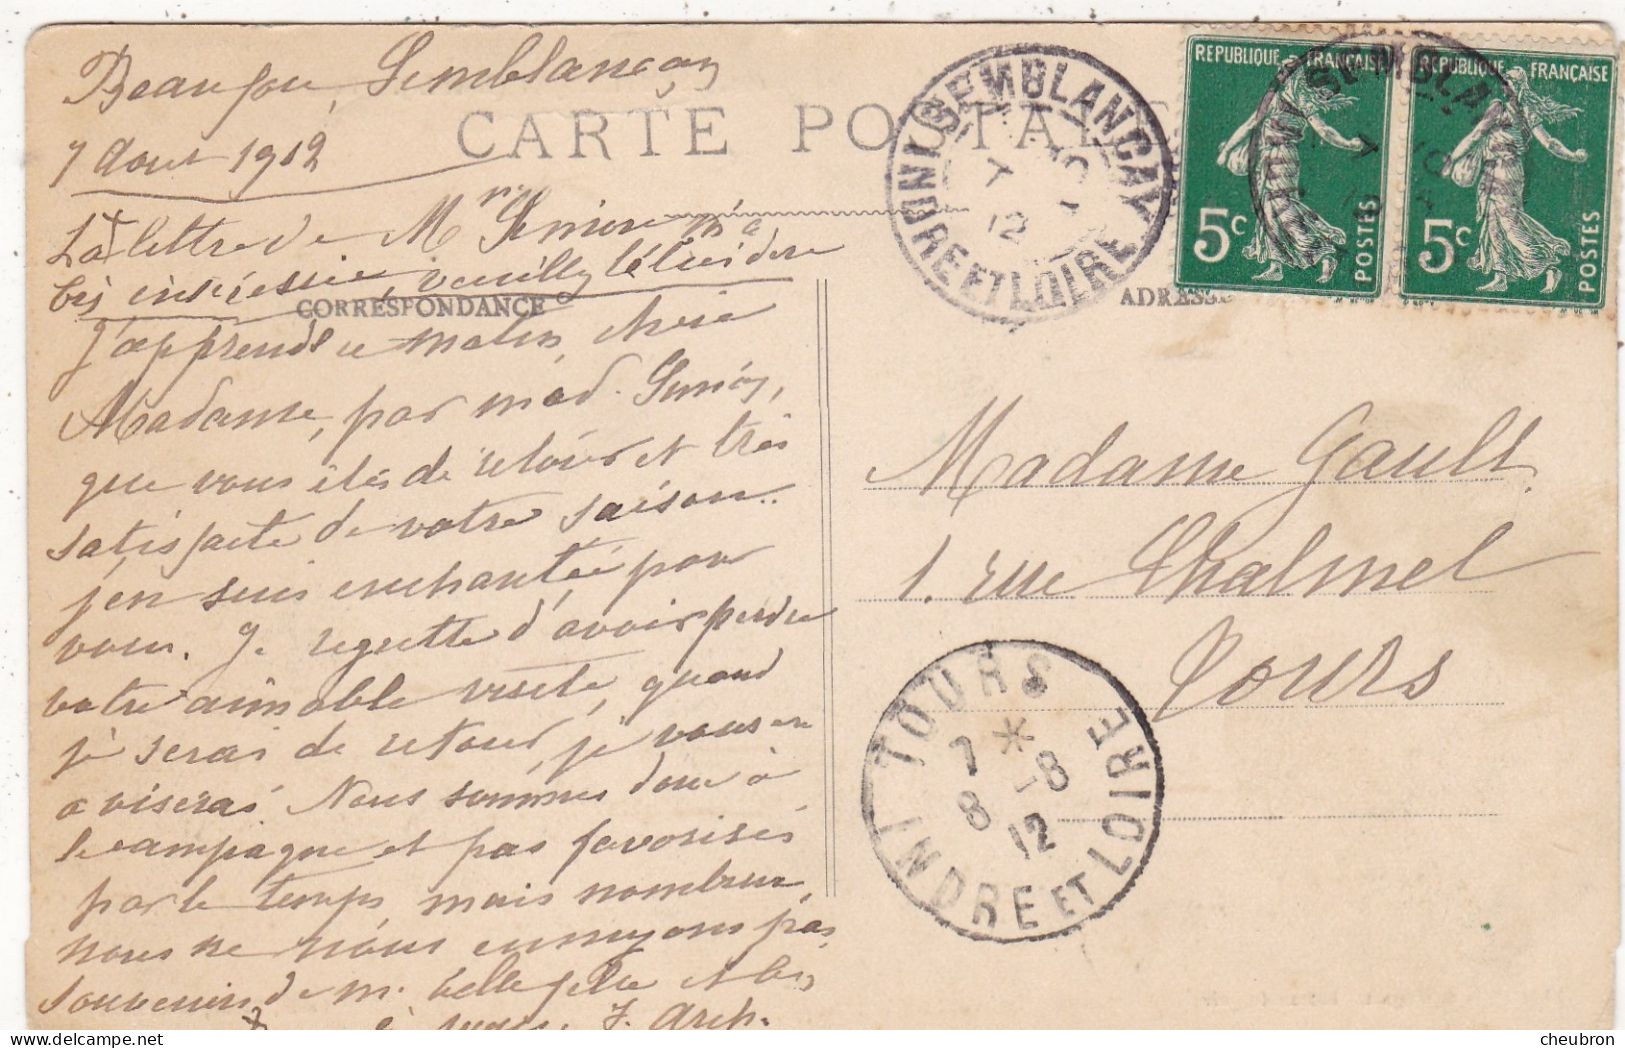 Semblançay
7 Aout 1912
CARTE POSTALE
La lettre de Mr m'a
CORRESPONDANCE
ADRESSE
J'apprends ce matin, chère
Madame, par mad.
que vous êtes de retour et très
satisfaite de votre saison.
j'en suis enchantée pour
vous. Je regrette d'avoir perdu
votre aimable visite, quand
je serai de retour, je vous en
aviserai. Nous sommes donc à
la campagne et pas favorisés
par le temps, mais nombreux,
nous ne nous ennuyons pas,
souvenirs de m.
SEMBLANÇAY
INDRE ET LOIRE
7
12
REPUBLIQUE FRANÇAISE
5c
POSTES
REPUBLIQUE FRANÇAISE
5c
POSTES
Madame Gault
1. rue Chalmel
Tours
TOURS
INDRE ET LOIRE
7 * -8
8 12
cheubron